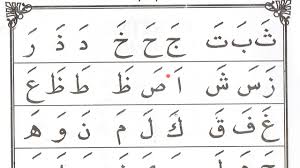 ثَ بَ تَ جَ حَ خَ دَ ذَ رَ
زَ سَ شَ اَ صَ ظَ طَ ظَ عَ
غَ فَ قَ كَ لَ مَ نَ وَ هَ